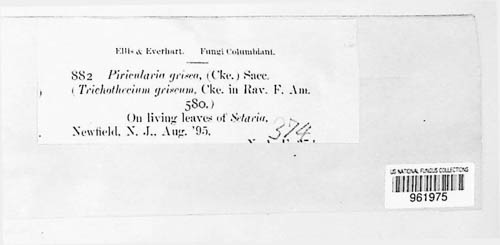 Ellis & Everhart. Fungi Columbiani.
882 Piricularia grisea, (Cke.) Sacc.
(Trichothecium griseum, Cke. in Rav. F. Am.
580.)
On living leaves of Setaria,
Newfield, N. J., Aug. '95.
374
US NATIONAL FUNGUS COLLECTIONS
961975